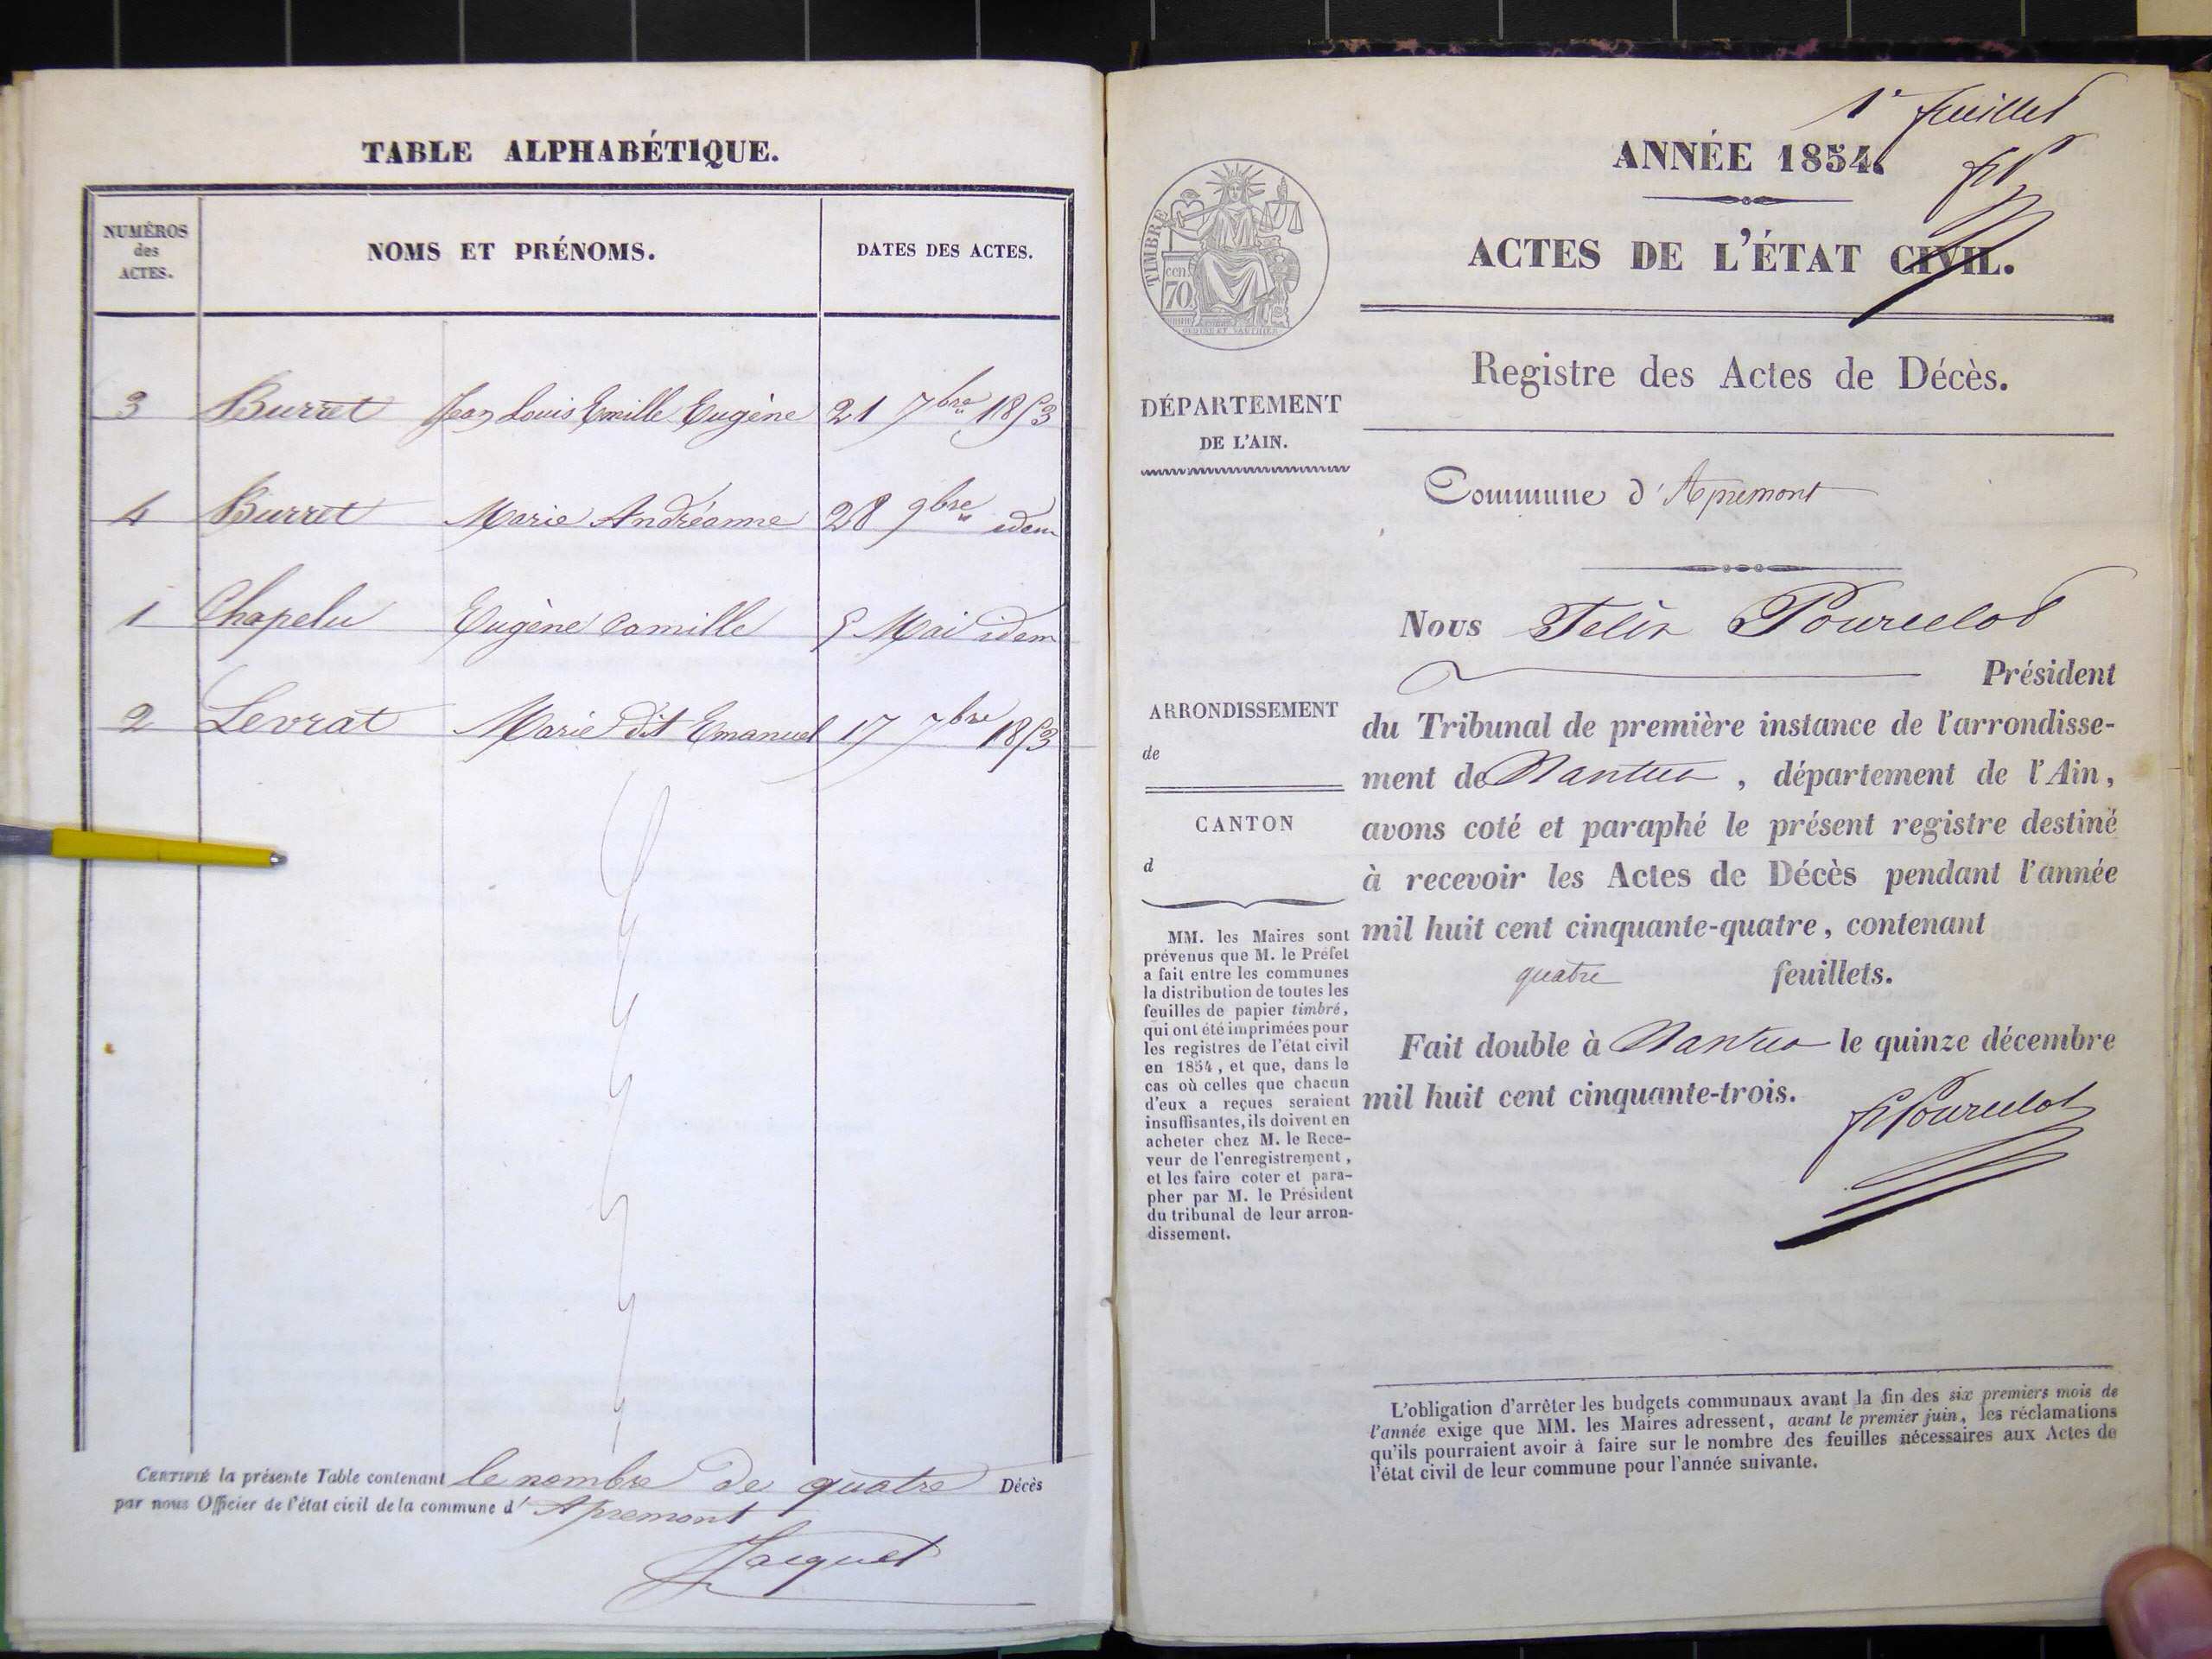 TABLE ALPHABÉTIQUE.
NUMÉROS
des
ACTES.
NOMS ET PRÉNOMS.
DATES DES ACTES.
3 Burret Jean Louis Emille Eugène 21 7bre 1853
4 Burret Marie Andréanne 28 9bre idem
1 Chapelu Eugène Camille 5 Mai idem
2 Levrat Marie dit Emanuel 17 7bre 1853
CERTIFIÉ la présente Table contenant le nombre de quatre Décès
par nous Officier de l'état civil de la commune d' Apremont
Jacquet
1r feuillet
ANNÉE 1854.
TIMBRE
cen.
70
ACTES DE L'ÉTAT CIVIL.
Registre des Actes de Décès.
DÉPARTEMENT
DE L'AIN.
Commune d'Apremont
Nous Felix Pourcelot
Président
du Tribunal de première instance de l'arrondisse-
ment de Nantua, département de l'Ain,
avons coté et paraphé le présent registre destiné
à recevoir les Actes de Décès pendant l'année
mil huit cent cinquante-quatre, contenant
quatre feuillets.
Fait double à Nantua le quinze décembre
mil huit cent cinquante-trois.
f Pourcelot
ARRONDISSEMENT
de
CANTON
d
MM. les Maires sont
prévenus que M. le Préfet
a fait entre les communes
la distribution de toutes les
feuilles de papier timbré,
qui ont été imprimées pour
les registres de l'état civil
en 1854, et que, dans le
cas où celles que chacun
d'eux a reçues seraient
insuffisantes, ils doivent en
acheter chez M. le Rece-
veur de l'enregistrement,
et les faire coter et para-
pher par M. le Président
du tribunal de leur arron-
dissement.
L'obligation d'arrêter les budgets communaux avant la fin des six premiers mois de
l'année exige que MM. les Maires adressent, avant le premier juin, les réclamations
qu'ils pourraient avoir à faire sur le nombre des feuilles nécessaires aux Actes de
l'état civil de leur commune pour l'année suivante.